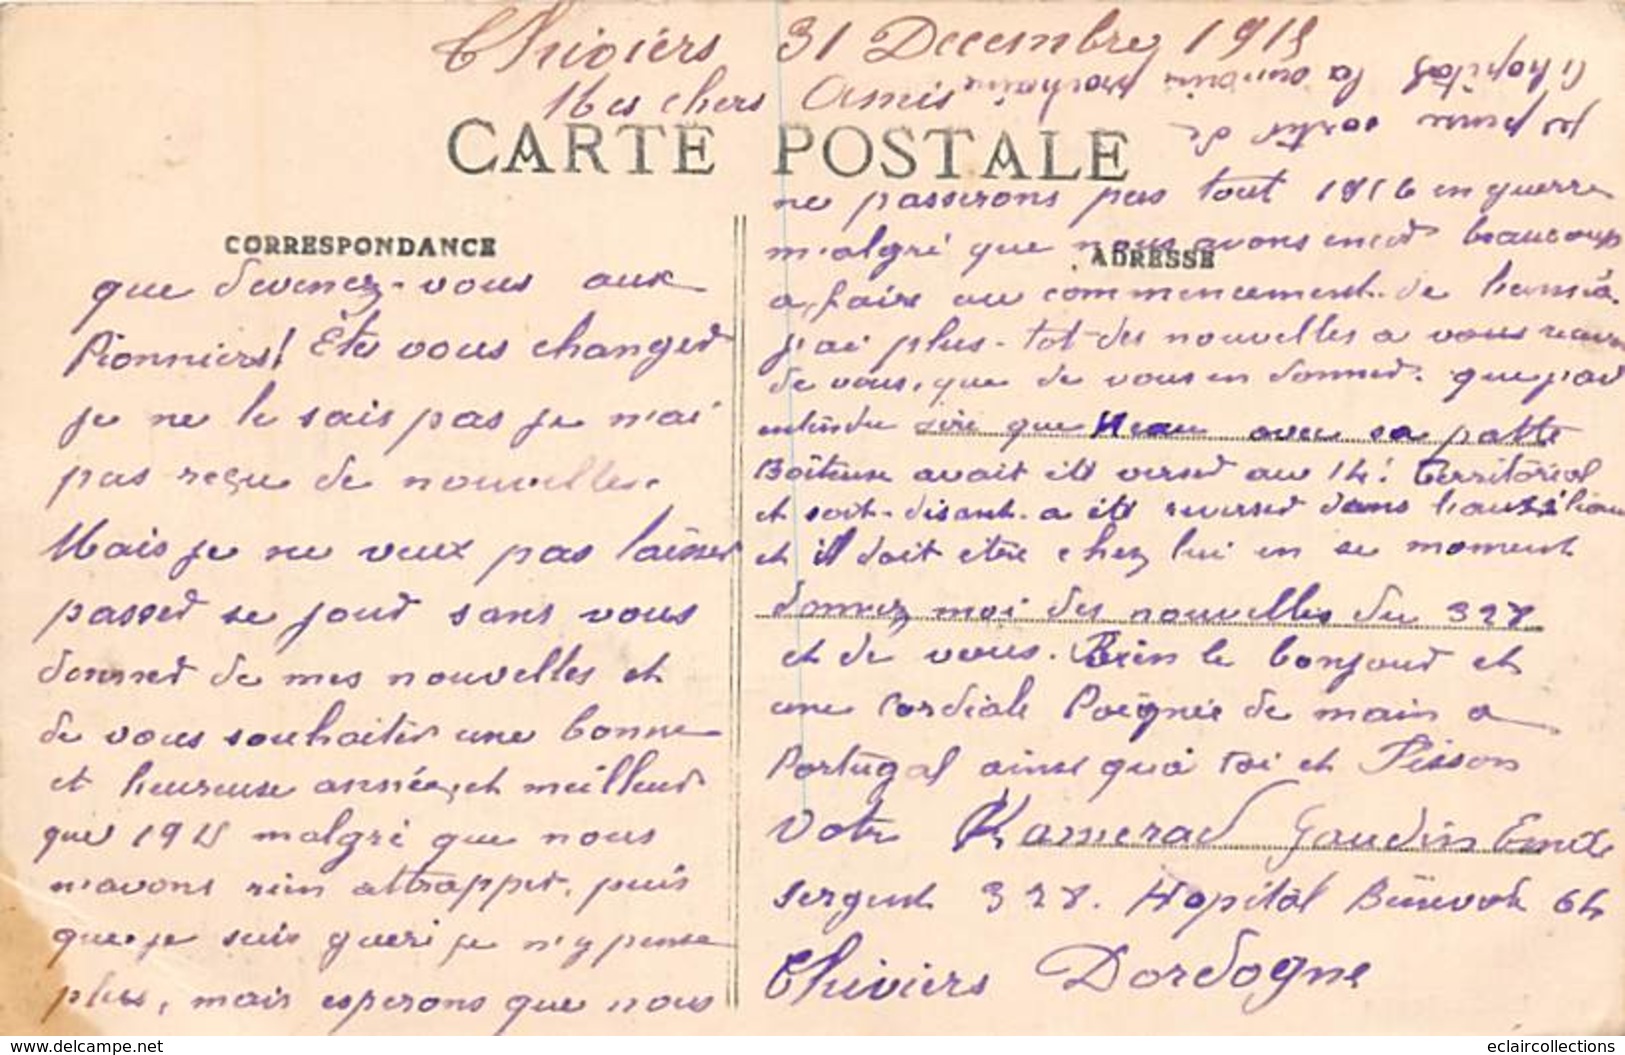 Thiviers 31 Decembre 1915
Mes chers Amis
CARTE POSTALE
CORRESPONDANCE
que devenez-vous aux
Pionniers! Ete vous changer
je ne le sais pas je n'ai
pas reçu de nouvelles.
Mais je ne veux pas laisser
passer se jour sans vous
donner de mes nouvelles et
de vous souhaiter une bonne
et heureuse année, et meilleur
que 1915 malgré que nous
n'avons rien attrapper, puis
que je suis gueri je n'y pense
plus, mais esperons que nous
ADRESSE
ne passerons pas tout 1916 en guerre
malgré que nous avons encor beaucoup
a faire au commencement de
j'ai plus-tot des nouvelles a vous
de vous, que de vous en donner. que j'ai
entendu dire que Neau avec sa patte
Boiteuse avait ete verser au 14! Territorial
et soit-disant a ete reverser dans
et il doit etre chez lui en se moment
donnez moi des nouvelles du 328
et de vous. Bien le bonjour et
une Cordiale Poignée de main a
Portugal ainse qu'a toi et Pisson
Votre Kamerad Gaudin
sergent 328. Hopital Bénévole 64
Thiviers Dordogne
je pense sortir de
l'hopital la semaine prochaine
eclaircollections
www.delcampe.net